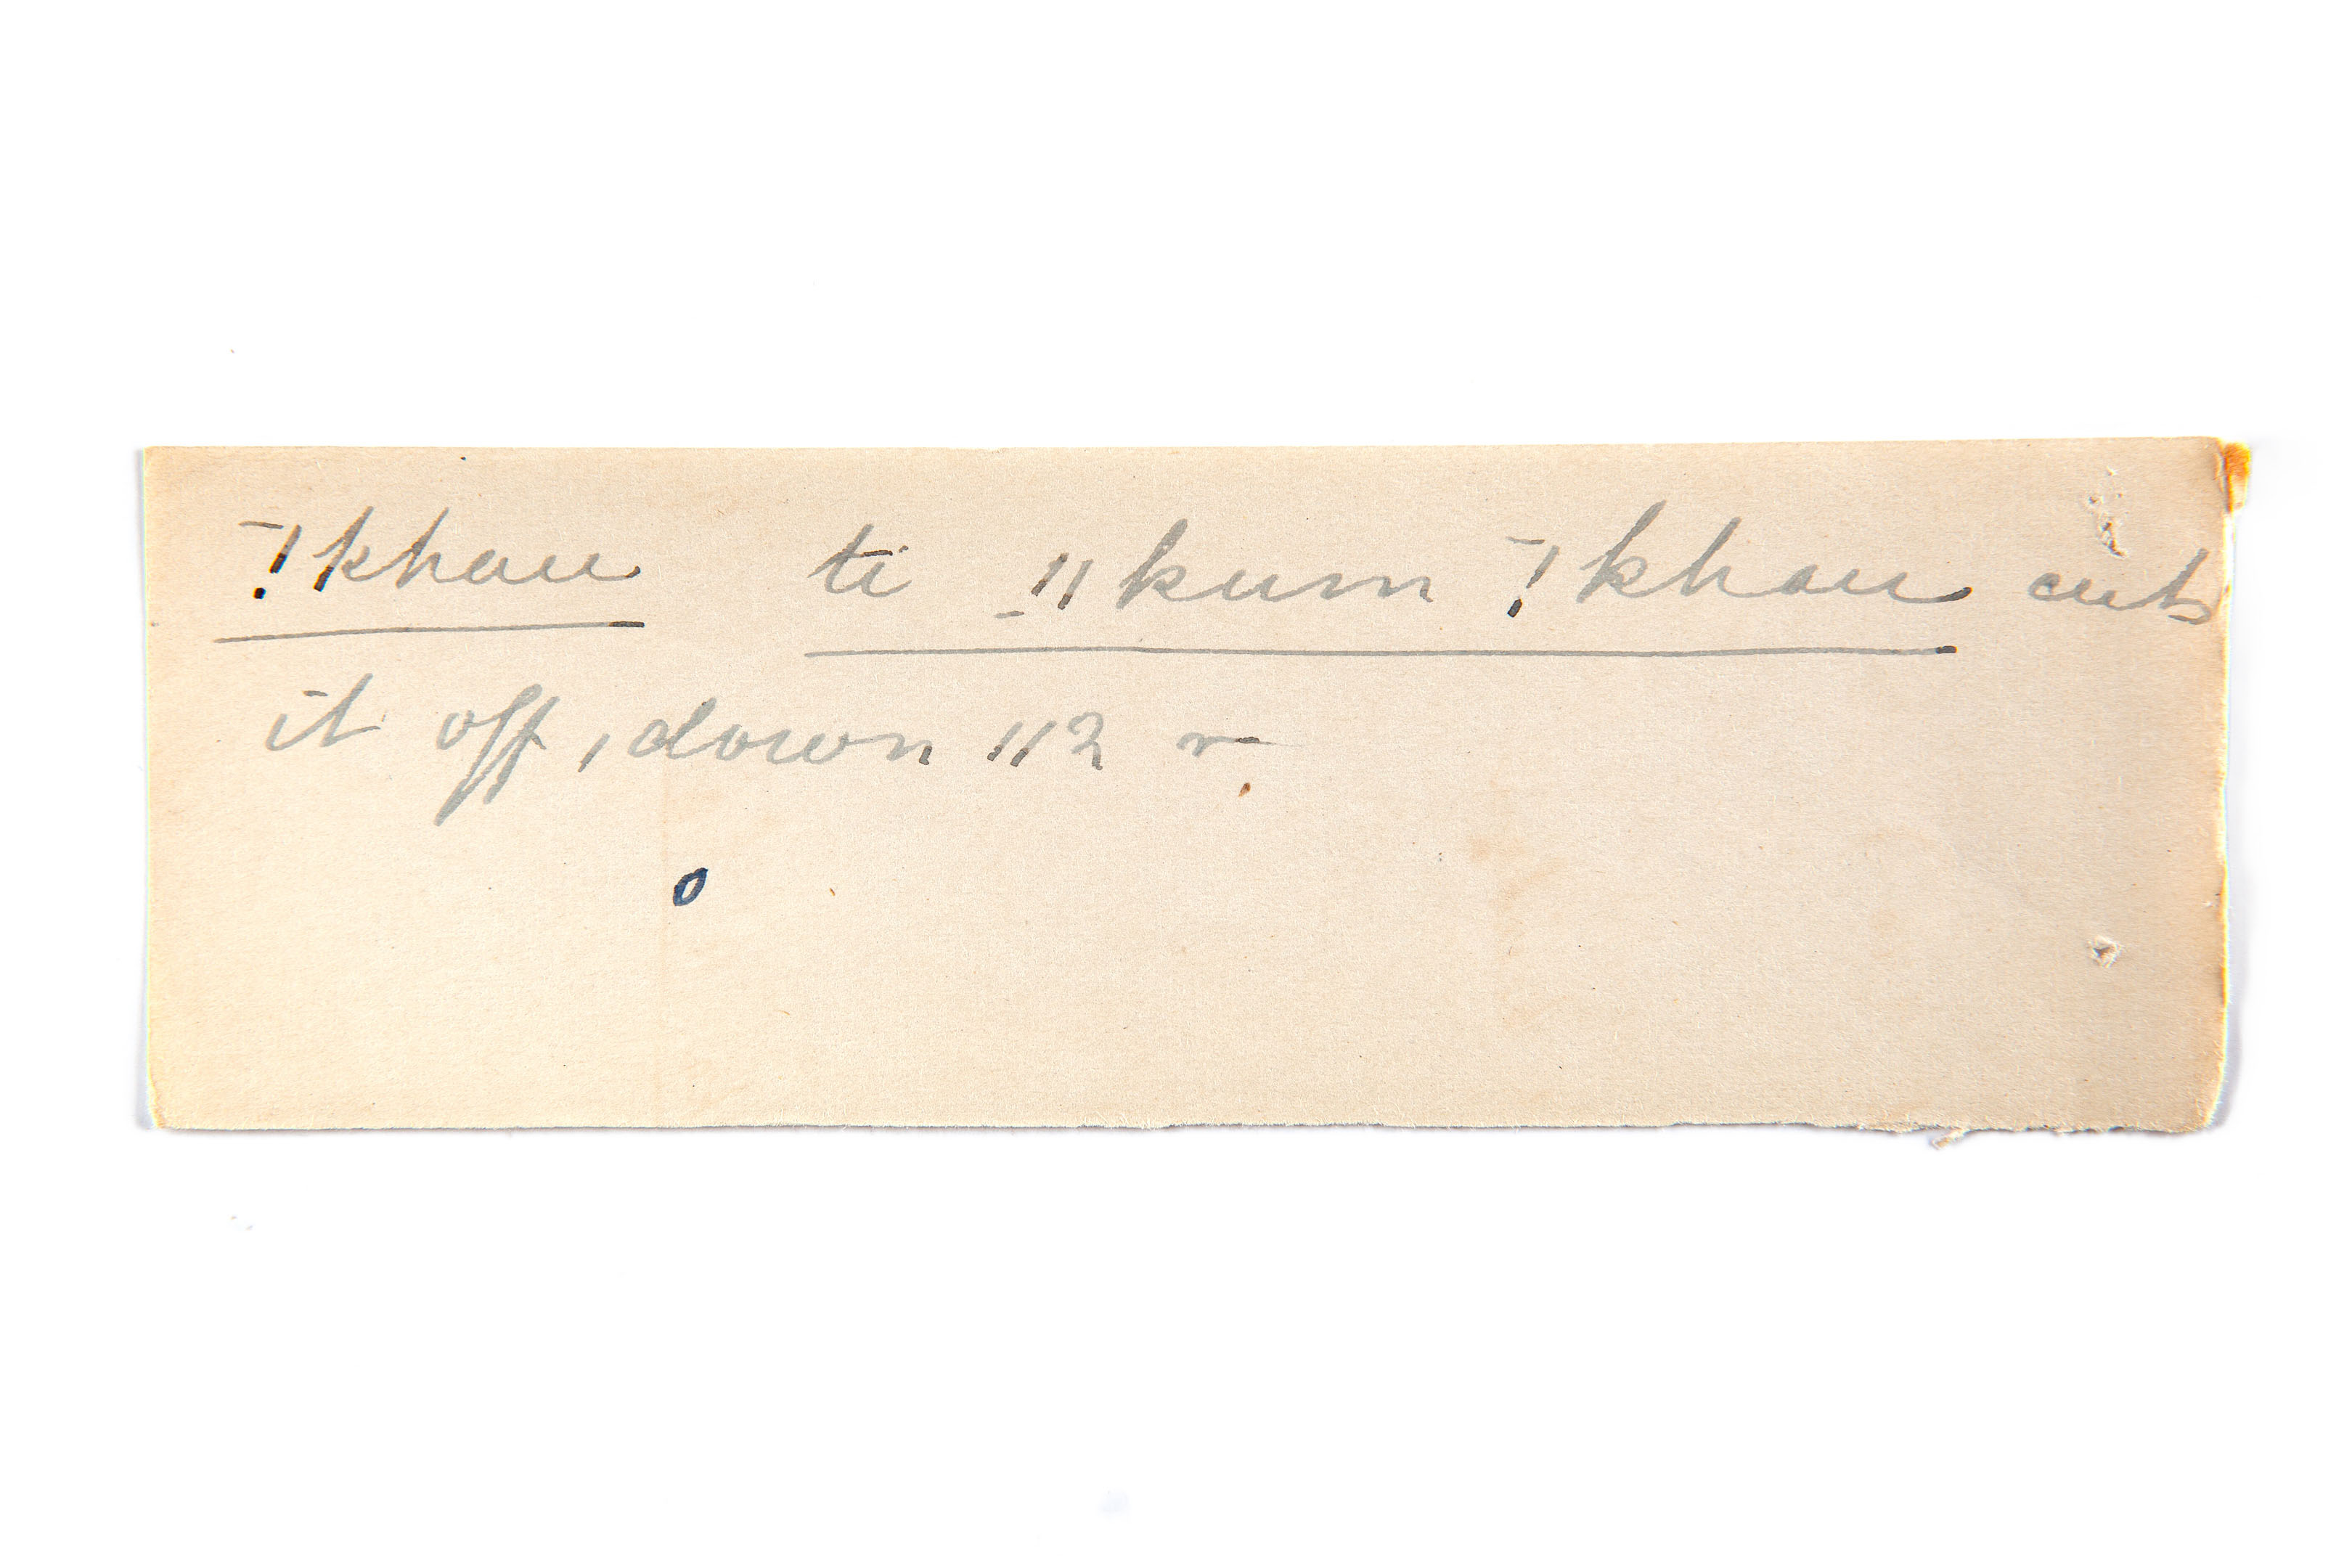 ˉ!khau ti ˍǁkum ˉ!khau cuts
it off, down 112 r.
o